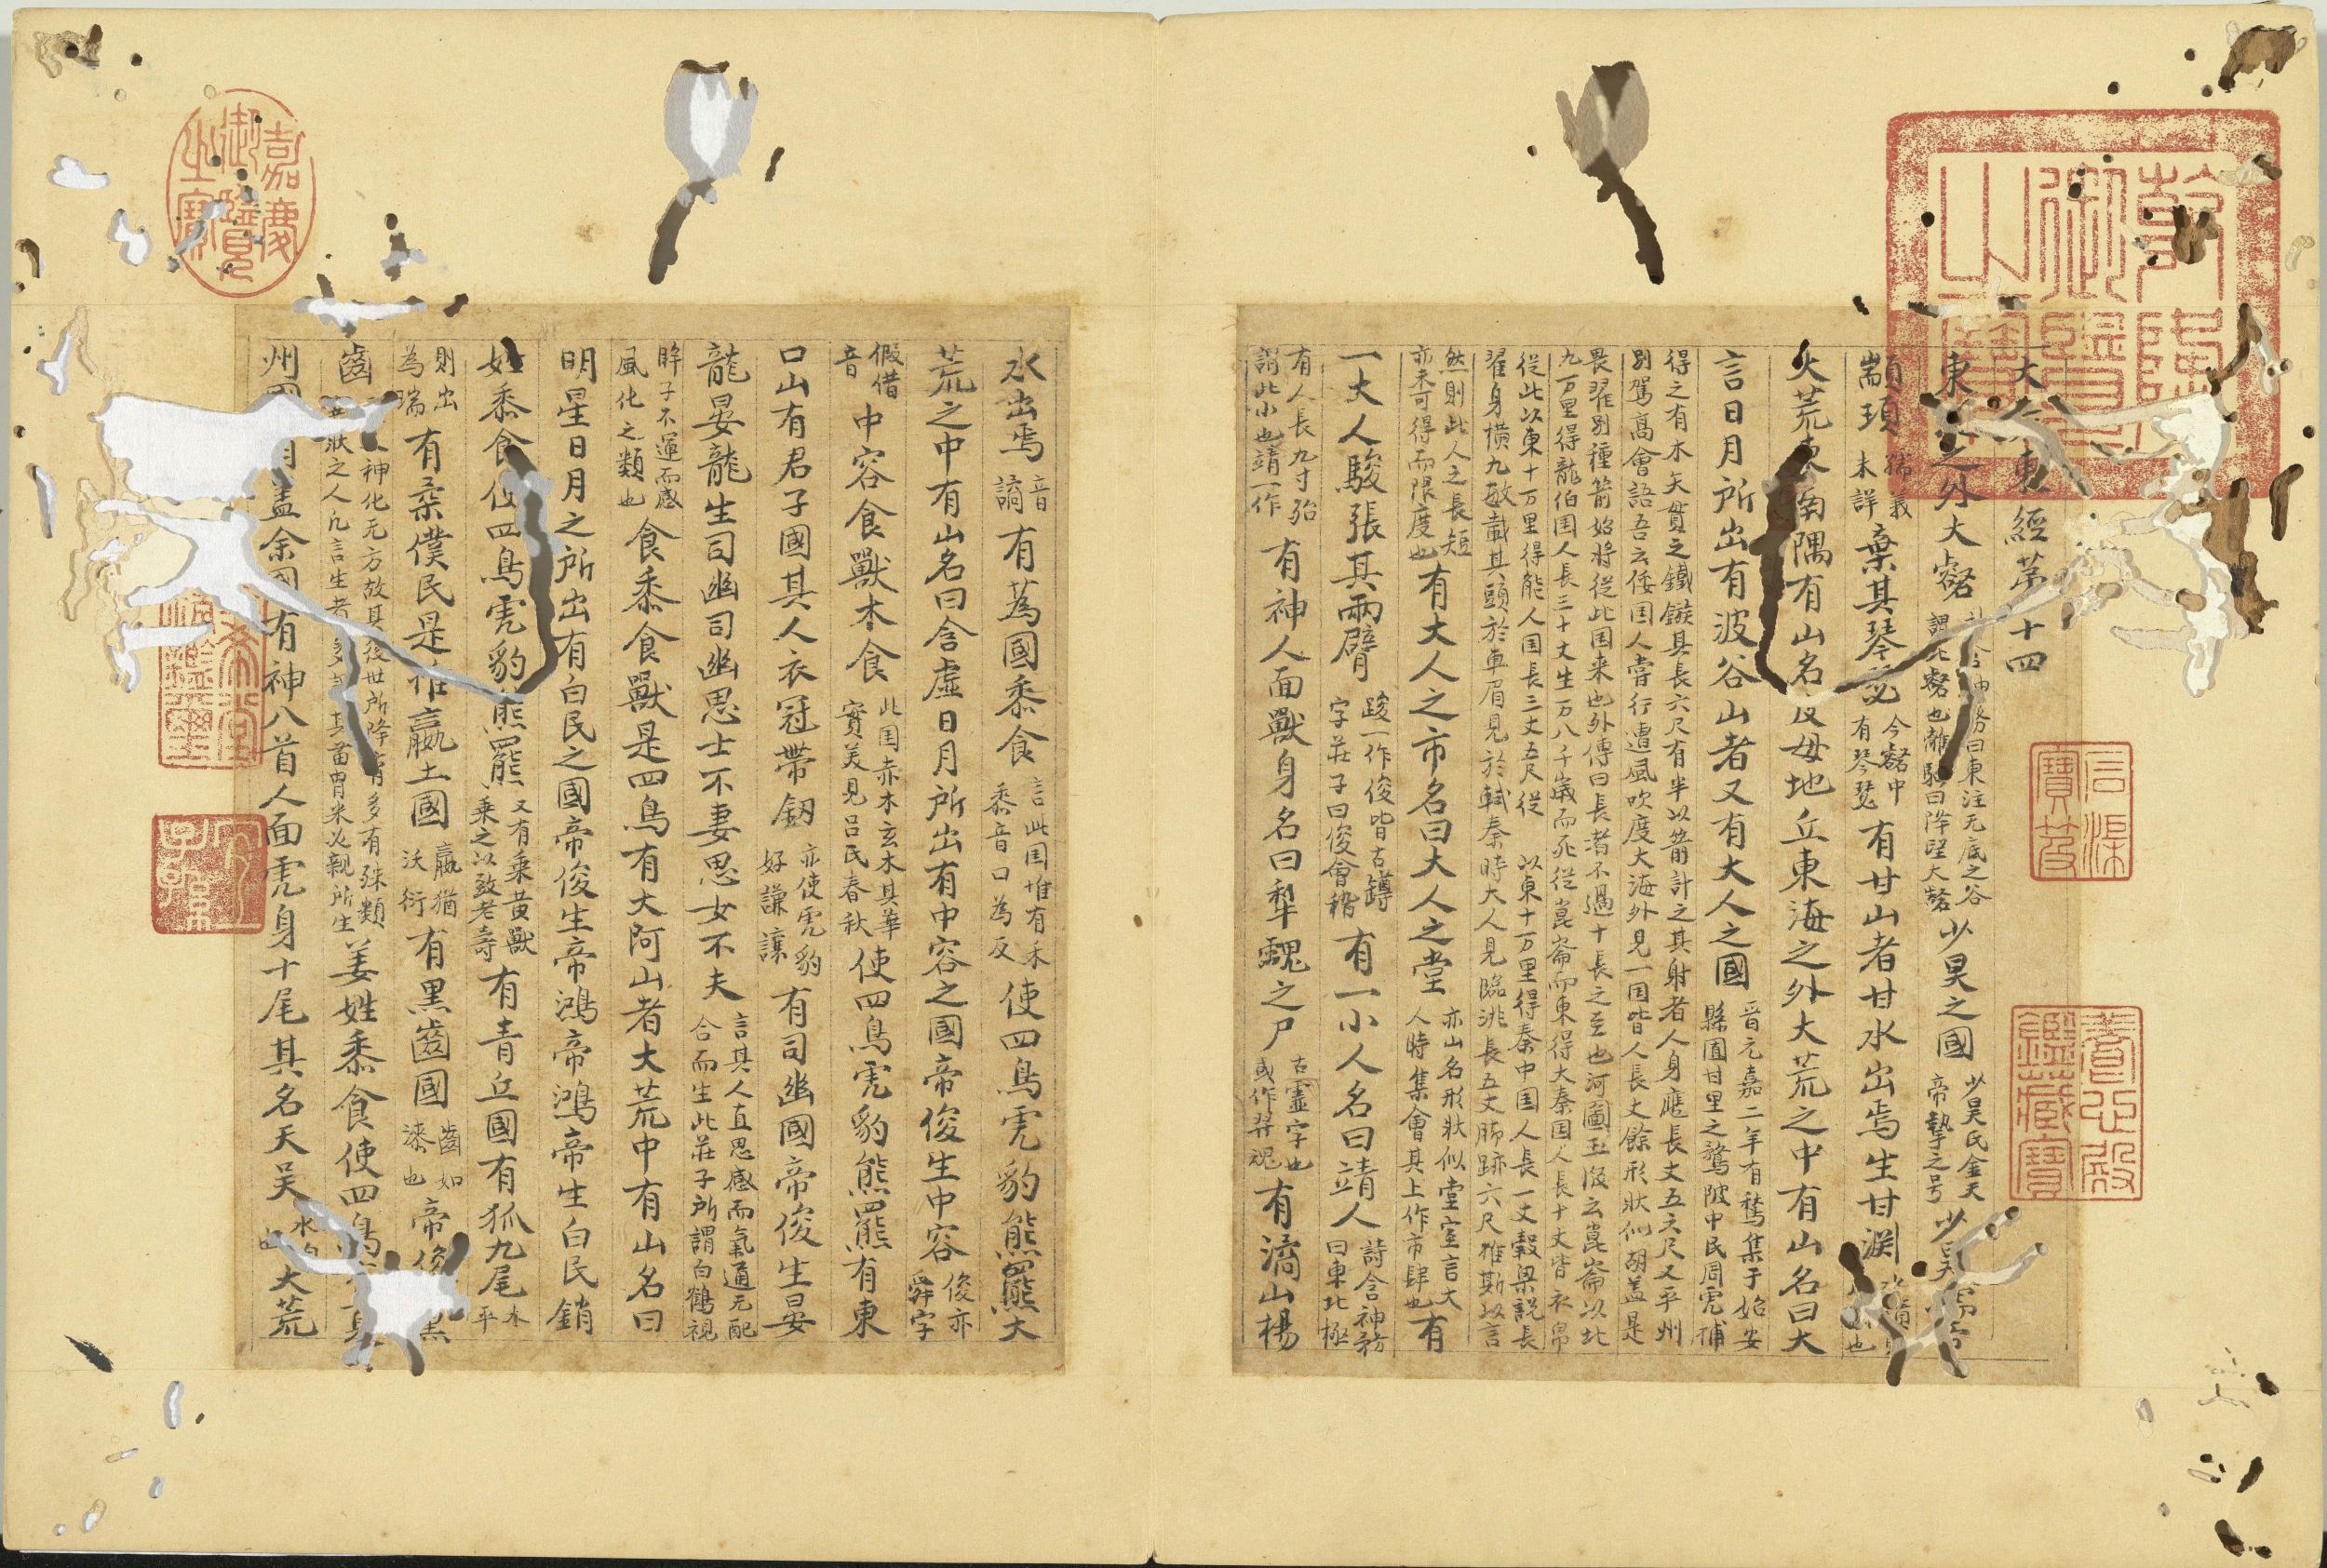 大東經苐十四
東之外大壑 少昊之國 少昊氏金天帝摯之号 少昊
顓頊 未詳 棄其琴瑟 今壑中有琴瑟 有甘山者甘水出焉生甘淵 也
大荒南隅有山名皮母地丘東海之外大荒之中有山名曰大
言日月所出有波谷山者又有大人之國 晉元嘉二年有鶩集于始安縣囿甘里之鶩陂中民周虎補
得之有木矢貫之鐵鏃其長六尺有半以箭計之其射者人身應長丈五六尺又平州
別駕高會語吾云倭国人嘗行遭風吹度大海外見一国皆人長丈餘形狀似胡蓋是
畏翟別種箭始將従此国来也外傳曰長者不過十長之至也河圖玉版云崑崙以北
九万里得龍伯国人長三十丈生万八千歲而死従崑崙而東得大秦国人長十丈皆衣帛
従此以東十万里得佻人国長三丈五尺従 以東十万里得秦中国人長一丈穀梁説長
翟身横九畝載其頭於車眉見於軾秦時大人見臨洮長五丈腳跡六尺惟斯以言
然則此人之長短亦未可得而限度也 有大人之市名曰大人之堂 亦山名形狀似堂室言大人時集會其上作市肆也 有
一大人駿張其兩臂 踆一作俊皆古蹲字莊子曰俊會稽 有一小人名曰靖人 詩含神務曰東北極
有人長九寸殆謂此小也靖一作 有神人面獸身名曰犂䰱之尸 古靈字也或作 有潏山楊
水出焉 音譎 有蔿國黍食 言此国惟有禾黍音口為反 使四鳥虎豹熊羆大
荒之中有山名曰含虛日月所出有中容之國帝俊生中容 俊亦舜字
假借音 中容食獸木食 此国赤木玄木其華實美見吕氏春秋 使四鳥虎豹熊羆有東
口山有君子國其人衣冠帶劒 亦使虎豹好謙讓 有司幽國帝俊生晏
龍晏龍生司幽司幽思士不妻思女不夫 言其人直思感而氣通无配合而生此莊子所謂白鶴視
眸子不運而感風化之類也 食黍食獸是四鳥有大阿山者大荒中有山名曰
明星日月之所出有白民之國帝俊生帝鴻帝鴻帝生白民銷
姓黍食使四鳥虎豹熊羆 又有乘黄獸乘之以致老壽 有青丘國有狐九尾 太平
則出為瑞 有柔僕民是維嬴土國 嬴猶沃衍 有黒齒國 齒如漆也 帝俊生黒
齒 神化无方故其後世所降育多有殊類異狀之人凢言生者多謂其苗胄未必親所生 姜姓黍食使四鳥有夏
州四 有蓋余國有神八首人面虎身十尾其名天吴 水伯也 大荒
乾隆御覽之寶
嘉慶御覽之寶
養心殿鑑藏寶